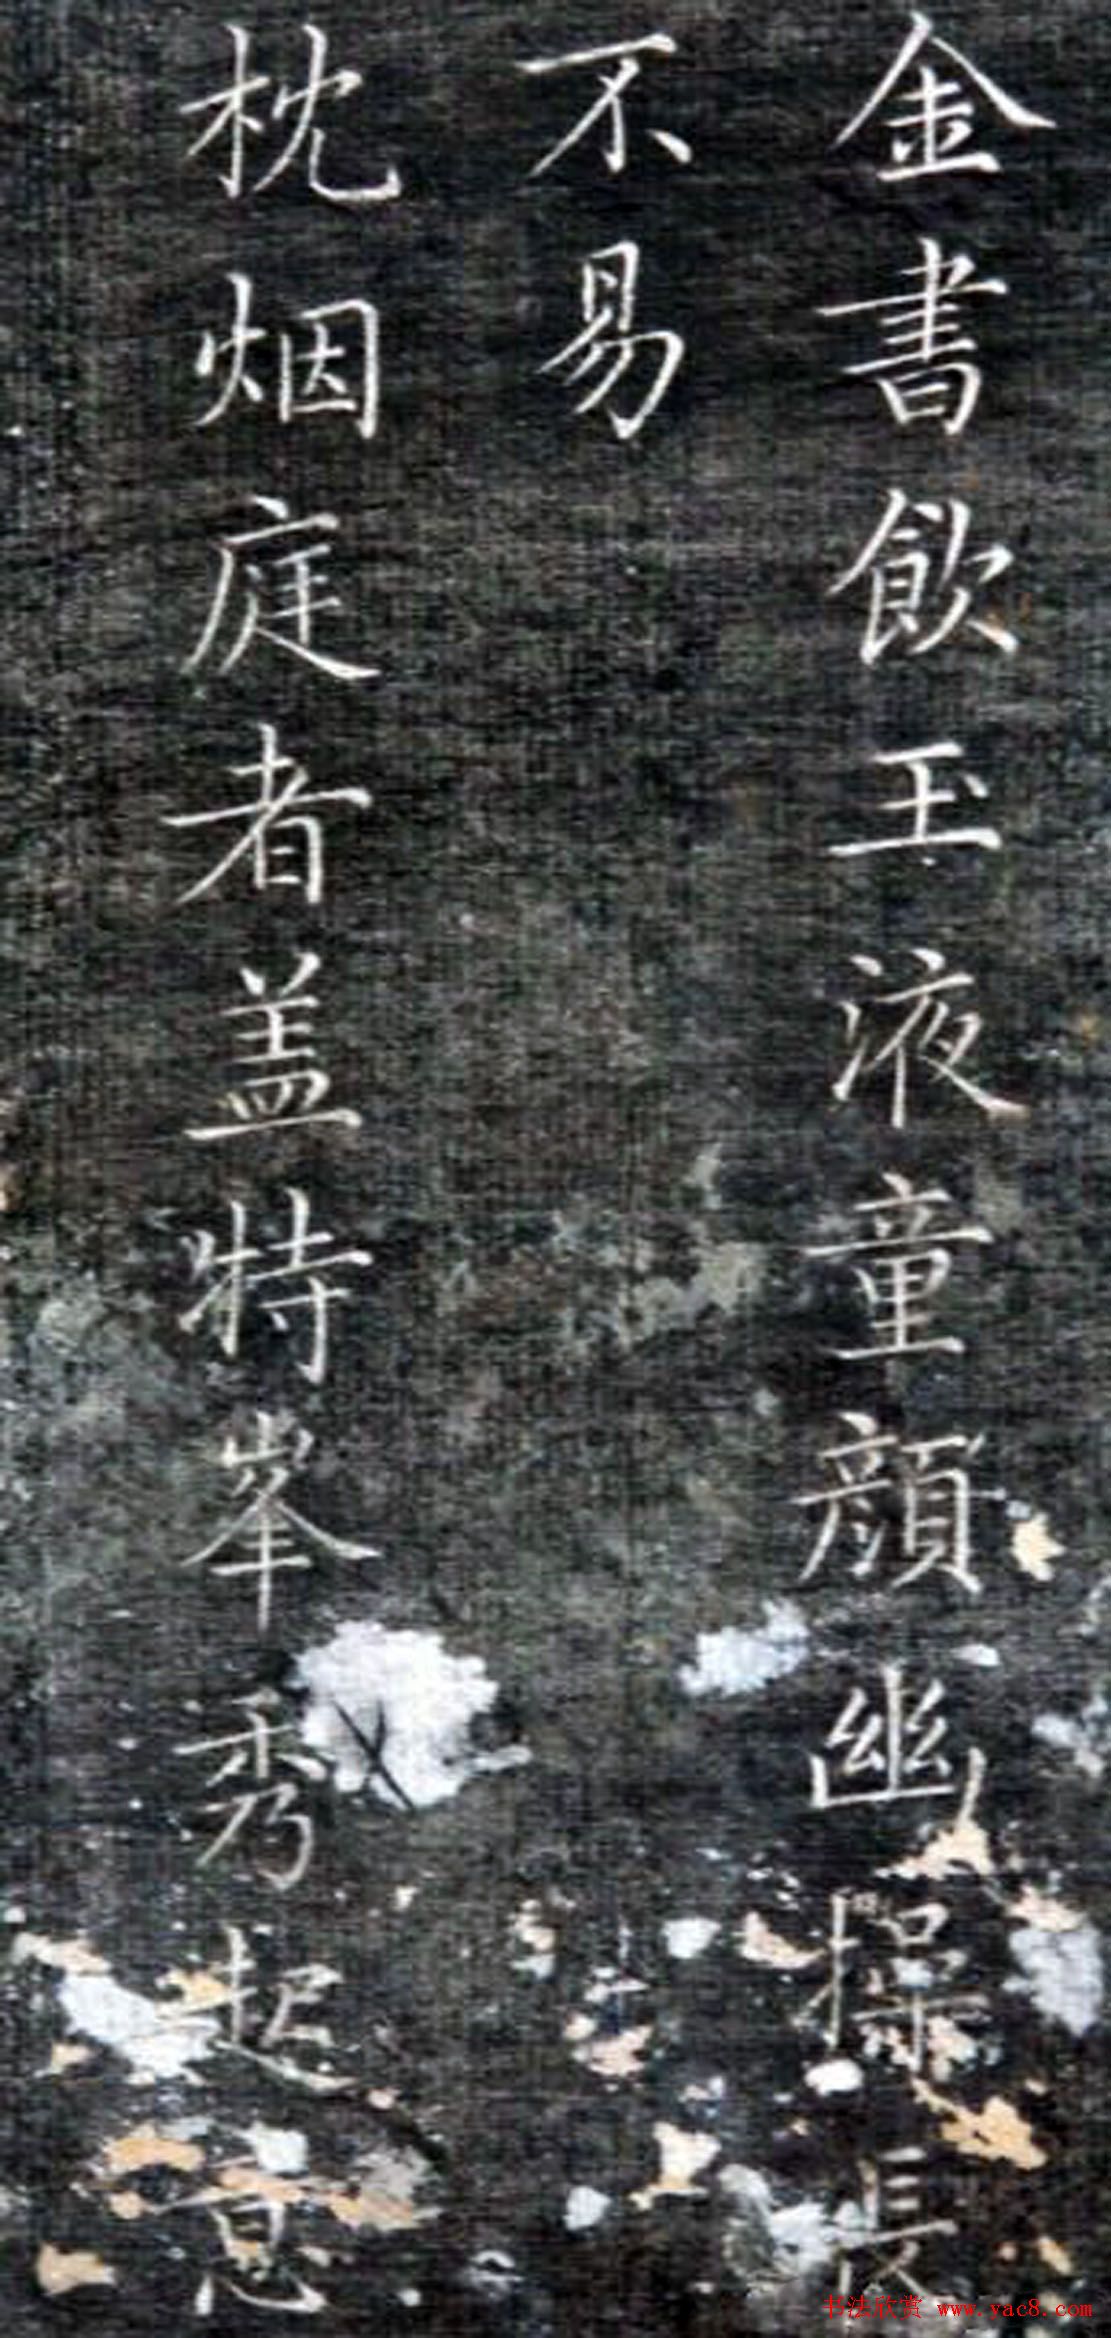 金書飲玉液童顏幽操長
不易
枕烟庭者盖特峯秀起意
书法欣赏 www.yac8.com